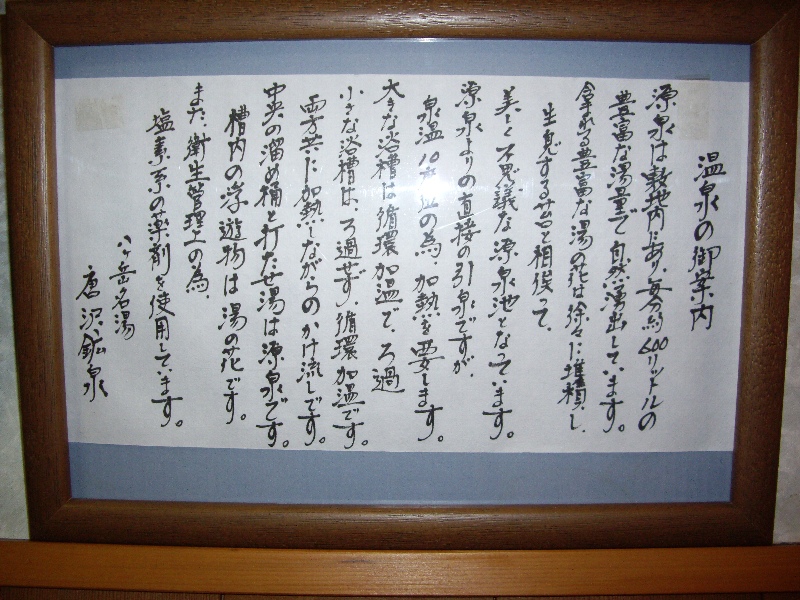 温泉の御案内
源泉は敷地内にあり、毎分約600リットルの
豊富な湯量で自然湧出しています。
含まれる豊富な湯の花は徐々に堆積し、
生息する苔と相俟って、
美しく不思議な源泉池となっています。
源泉よりの直接の引泉ですが、
泉温10.6位の為、加熱を要します。
大きな浴槽は循環加温で、ろ過
小さな浴槽は、ろ過せず、循環加温です。
両方共に加熱しながらのかけ流しです。
中央の溜め桶と打たせ湯は源泉です。
槽内の浮遊物は湯の花です。
また、衛生管理上の為、
塩素系の薬剤を使用しています。
八ヶ岳名湯
唐沢鉱泉